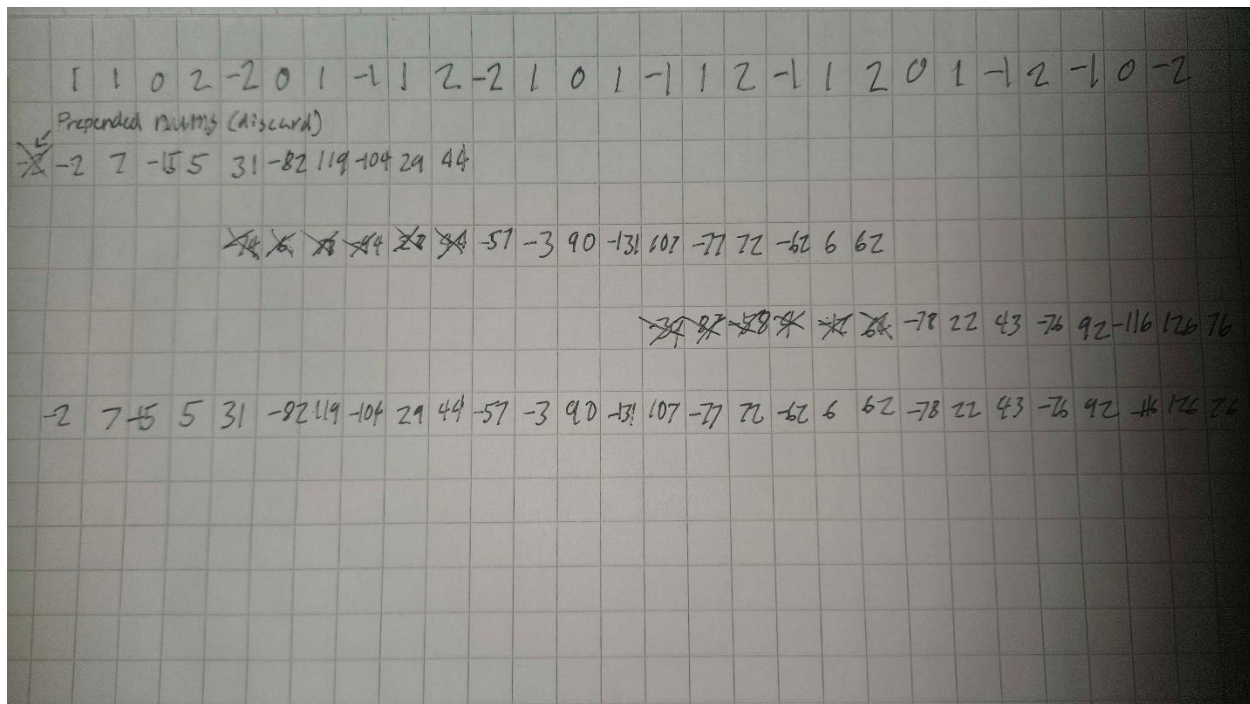 1 1 0 2 -2 0 1 -1 1 2 -2 1 0 1 -1 1 2 -1 1 2 0 1 -1 2 -1 0 -2
Prepended nums (discard)
-2 7 -15 5 31 -82 119 -104 29 44
-57 -3 90 -131 107 -77 72 -62 6 62
-78 22 43 -76 92 -116 126 76
-2 7 -15 5 31 -82 119 -104 29 44 -57 -3 90 -131 107 -77 72 -62 6 62 -78 22 43 -76 92 -116 126 76